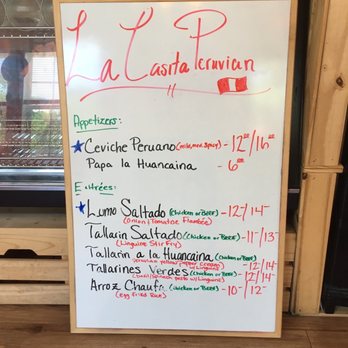 La Casita Peruvian
Appetizers:
Ceviche Peruano (mild, med, spicy) - 12⁰⁰/16⁰⁰
Papa la Huancaina - 6⁰⁰
Entrées:
Lumo Saltado (chicken or BEEF) - 12/14
(Onion/Tomatoe Flambée)
Tallarin Saltado (chicken or BEEF) - 11/13
(Linguine Stir Fry)
Tallarin a la Huancaina (chicken or BEEF)
(Peruvian yellow pepper creamy w/Linguine) - 12/14
Tallarines Verdes (chicken or BEEF) - 12/14
(basil/spinach pesto w/Linguine)
Arroz Chaufa (chicken or BEEF) - 10/12
(Egg Fried Rice)